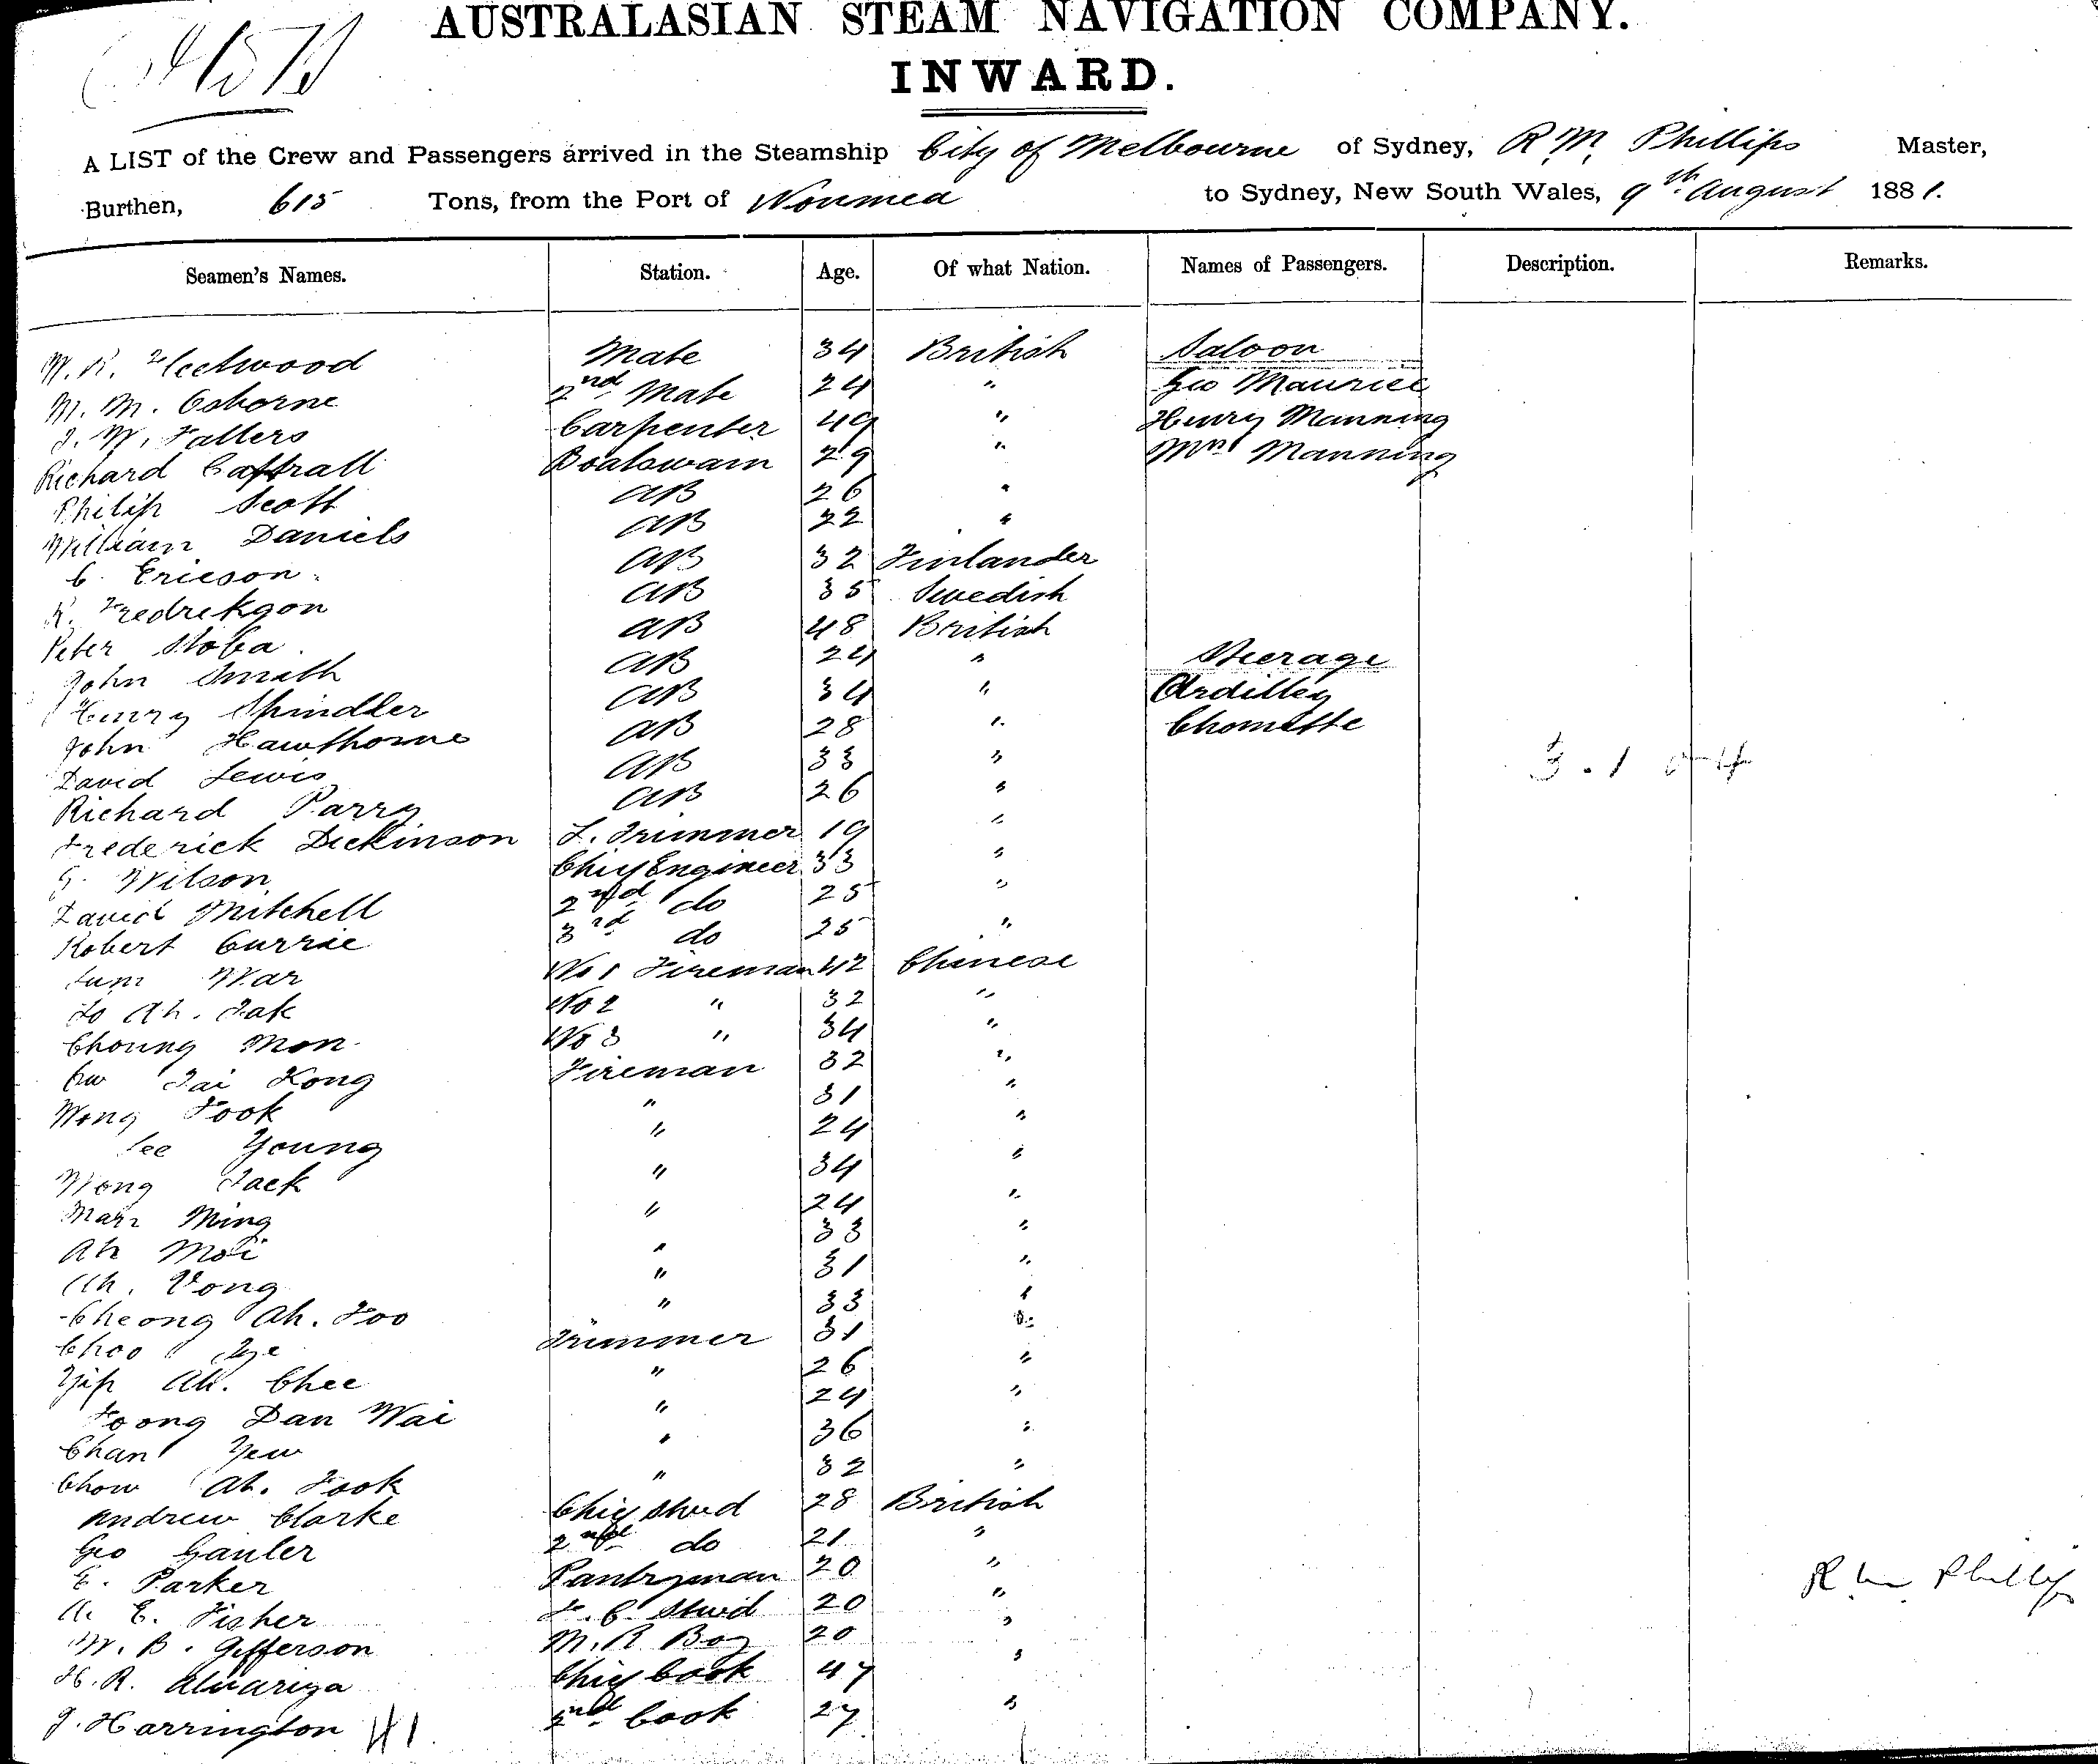 AUSTRALASIAN STEAM NAVIGATION COMPANY.
INWARD.
A LIST of the Crew and Passengers arrived in the Steamship City of Melbourne of Sydney, R.M. Phillips Master,
Burthen, 615 Tons, from the Port of Noumea to Sydney, New South Wales, 9th August 1881.
Seamen's Names. Station. Age. Of what Nation. Names of Passengers. Description. Remarks.
W. R. Fleetwood Mate 34 British Saloon
M. M. Osborne 2nd Mate 24 " Geo Maurice
J. W. Fallers Carpenter 49 " Henry Manning
Richard Caffrall Boatswain 29 " Mrs Manning
Philip Scott AB 26 "
William Daniels AB 22 "
C. Ericson AB 32 Finlander
R. Fredrikson AB 35 Swedish
Peter AB 48 British
John Smith AB 24 " Steerage
Henry Spindler AB 34 " Ardilley
John Hawthorne AB 28 " Chomette
David Lewis AB 33 "
Richard Parry AB 26 "
Frederick Dickinson L. Trimmer 19 "
G. Wilson Chief Engineer 33 "
David Mitchell 2nd do 25 "
Robert Currie 3rd do 25 "
War No 1 Fireman 42 Chinese
Lo Ah. Tak No 2 " 32 "
Choung Mon No 3 " 34 "
Tai Kong Fireman 32 "
Wong Fook " 31 "
Lee Young " 24 "
Wong Jack " 34 "
Marr Ming " 24 "
Ah Moi " 33 "
Ah. Vong " 31 "
Cheong Ah. Foo " 33 "
Choo Trimmer 31 "
Yip Ah. Chee " 26 "
Foong Dan Wai " 24 "
Chan Yew " 36 "
Chow Ah. Fook " 32 "
Andrew Clarke Chief Stwd 28 British
Geo Gauler 2nd do 21 "
E. Parker Pantryman 20 "
A. E. Fisher F. C. Stwd 20 "
W. B. Jefferson M. R Boy 20 "
H. R. Alvariza Chief Cook 47 "
J. Harrington 2nd Cook 27 "
41
R M Phillips